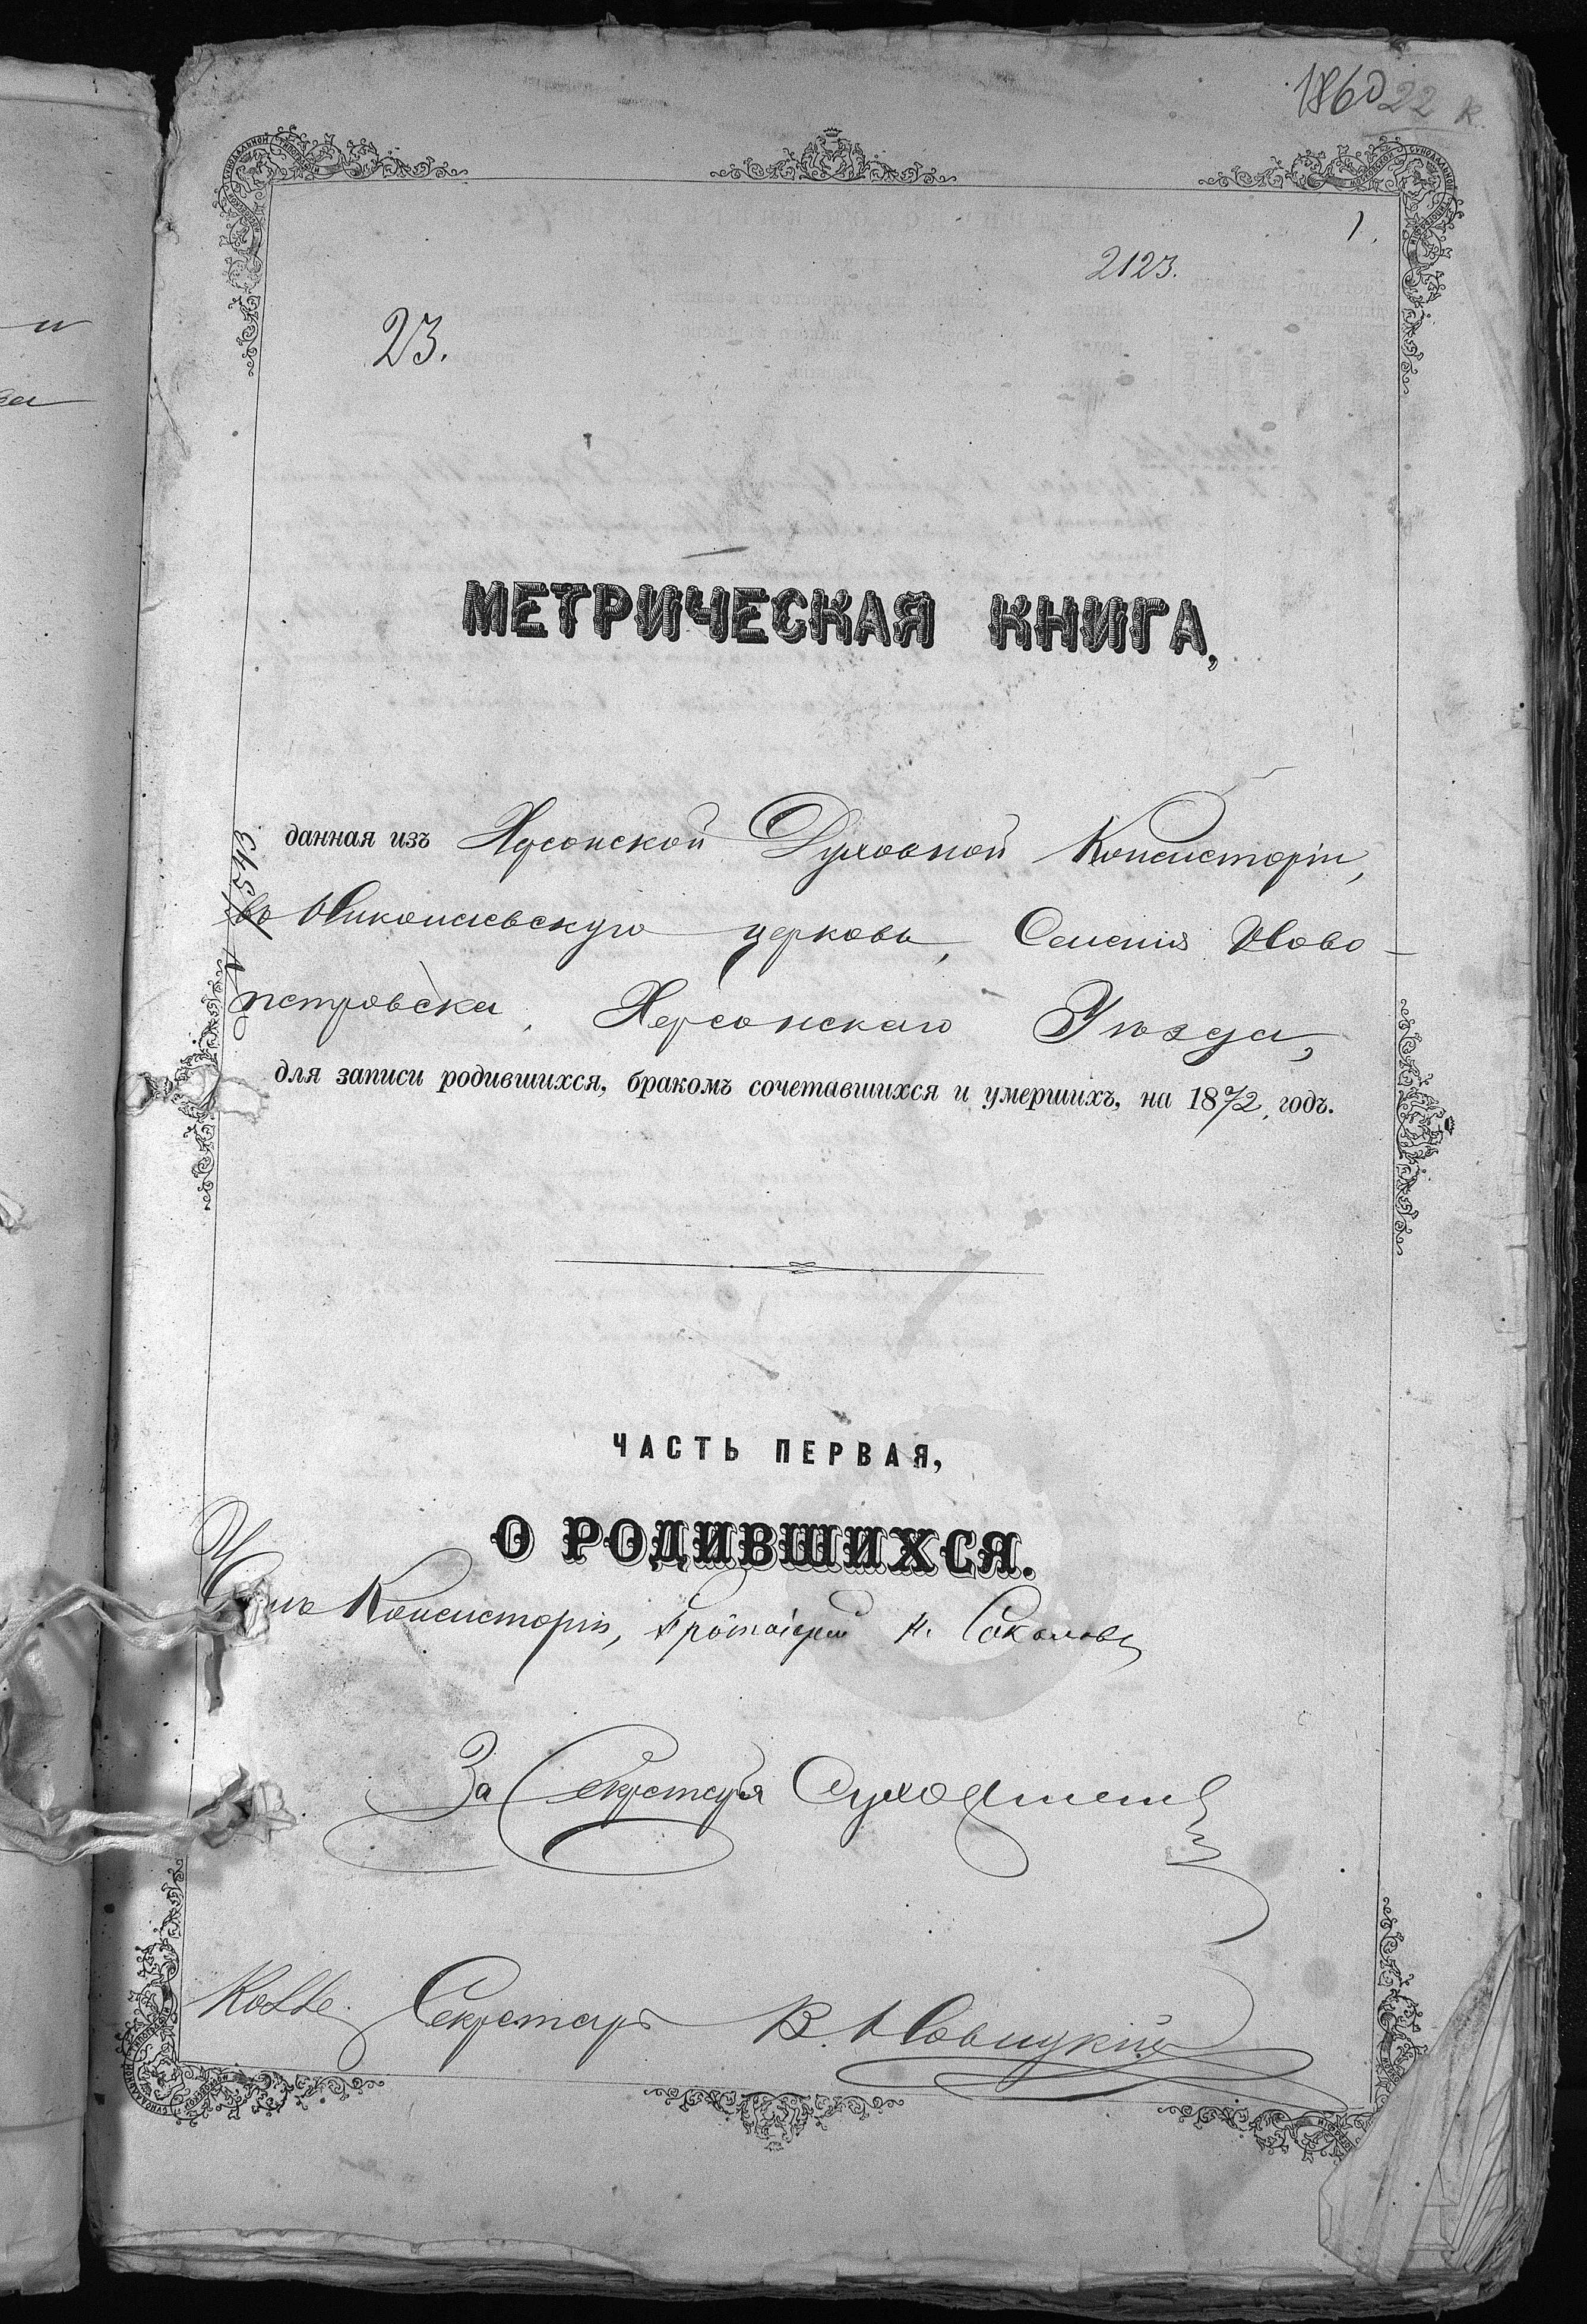 1860 22 к.
1.
2123.
23.
МЕТРИЧЕСКАЯ КНИГА,
данная изъ Херсонской Духовной Консисторіи,
въ Николаевскую церковь, Селенія Ново-
петровска, Херсонскаго Уѣзда,
для записи родившихся, бракомъ сочетавшихся и умершихъ, на 1872 годъ.
ЧАСТЬ ПЕРВАЯ,
О РОДИВШИХСЯ.
Членъ Консисторіи, Протоіерей Соколовъ
За Секретаря
Секретарь В. Новицкій